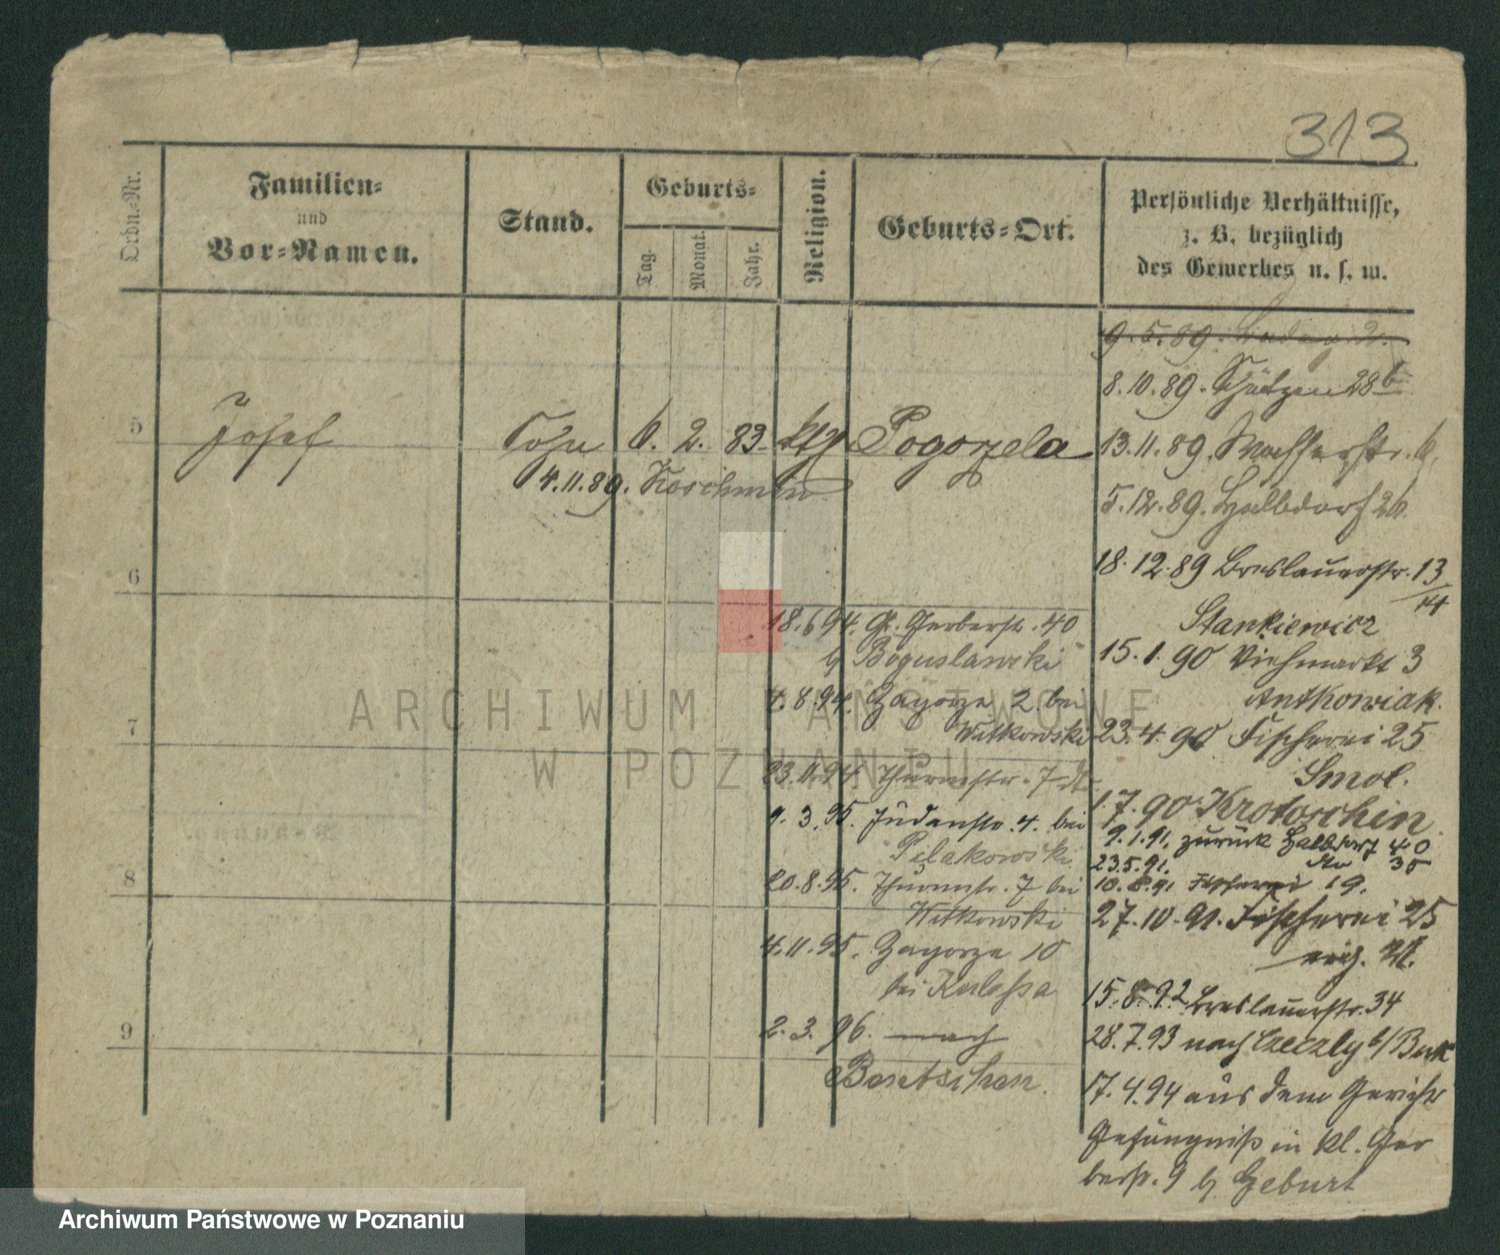 313.
Ordn.-Nr.
Familien-
und
Vor-Namen.
Stand.
Geburts-
Tag.
Monat.
Jahr.
Religion.
Geburts-Ort.
Persönliche Verhältnisse,
z. B. bezüglich
des Gewerbes u. s. w.
9.5.89.
8.10.89. Schützen 28b
5 Josef Sohn 6. 2. 83. kth Pogorzela
13.11.89. Wasserstr. 6.
4.11.89. Koschmin
5.12.89. Halbdorf 26.
6
18.12.89 Breslauerstr. 13/14
Stankiewicz
15.1.90 Viehmarkt 3
Antkowiak.
23.4.90 Fischerei 25
Smol.
1.7.90 Krotoschin
9.1.91. zurück Halbdorf 40
23.5.91. dto 35
10.8.91 Fischerei 19.
27.10.91. Fischerei 25
15.8.92 Breslauerstr. 34
28.7.93 nach b/Buk
17.4.94 aus dem Gerichts
Gefängniß in Kl. Ger
berstr. 9 b/ Geburt
18.6.94. Gr. Gerberstr. 40
b/ Boguslawski
4.8.94. Zagorze 2 bei
Witkowski
7
23.11.94. Thurmstr. 7 dto
9.3.95. Judenstr. 4. bei
Pelakowski
8
20.8.95. Thurmstr. 7 bei
Witkowski
4.11.95. Zagorze 10
bei Kulessa
9
2.3.96. nach
Bentschen.
ARCHIWUM PAŃSTWOWE
W POZNANIU
Archiwum Państwowe w Poznaniu